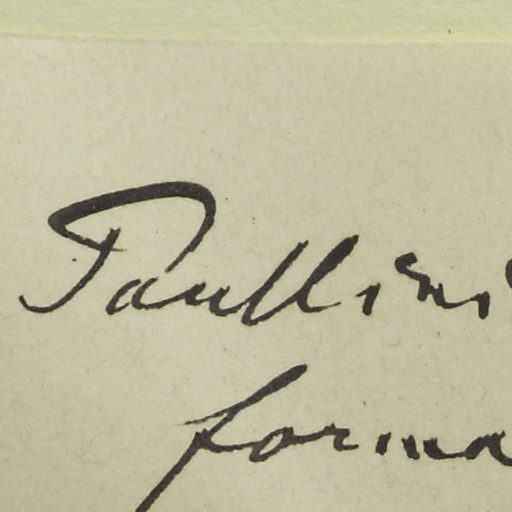 Paullini
forma